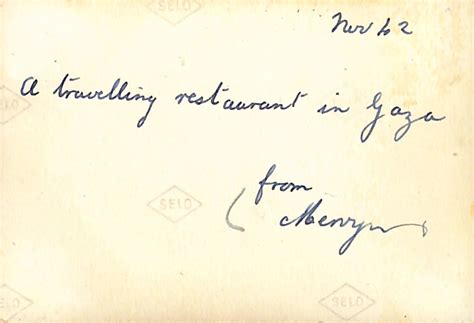 Nov 42
A travelling restaurant in Gaza
from
Mervyn
SELO
SELO
SELO
SELO